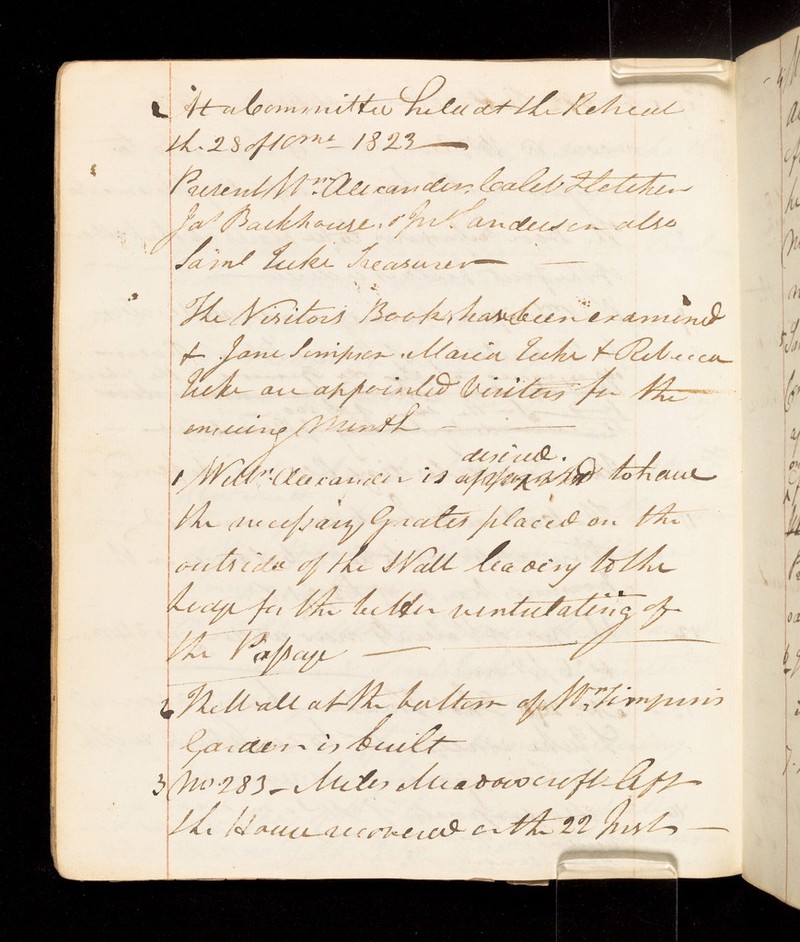 At a Committee held at the Retreat
the 28 of 10 mo 1823
Present Wm. Alexander, Caleb Fletcher
Jas Backhouse, & Jn Sanderson also
Saml Tuke Treasurer
The Visitors Book has been examined
& Jane Simpson Maria Tuke & Rebecca
Tuke are appointed Visitors for the
ensuing Month
desired.
1 Willm. Alexander is appointed to have
the necessary Grates placed on the
outside of the Wall leading to the
for the better ventulating of
the Passage
2 The Wall at the bottom of Wm. Simpsons
Garden is built
3 No 283 - Miles Meadowcroft left
the House recovered on the 22 Inst